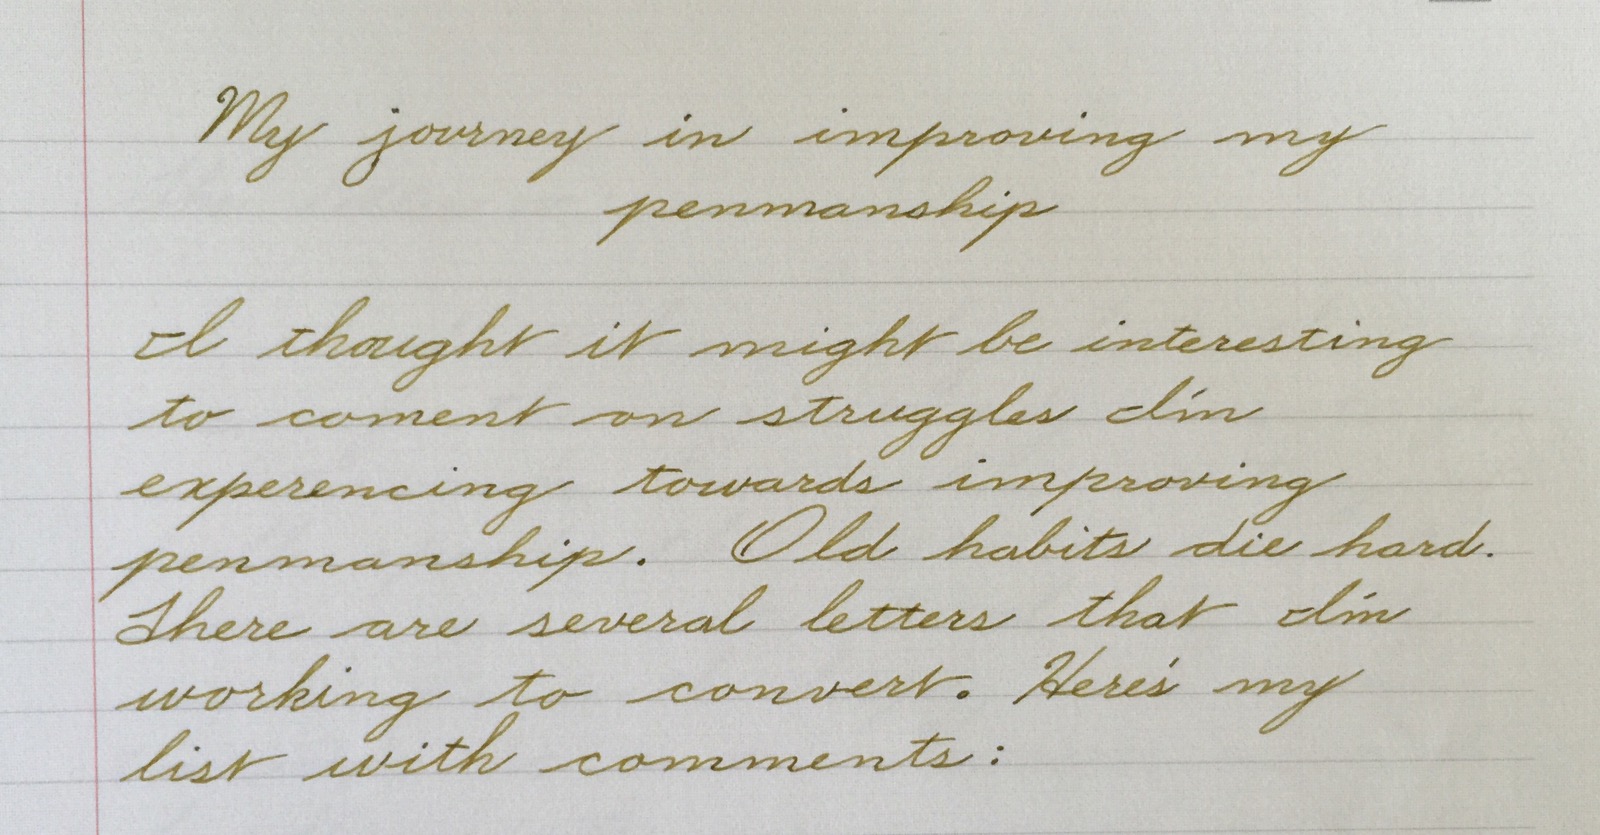 My journey in improving my
penmanship
I thought it might be interesting
to coment on struggles I'm
experencing towards improving
penmanship. Old habits die hard.
There are several letters that I'm
working to convert. Here's my
list with comments: